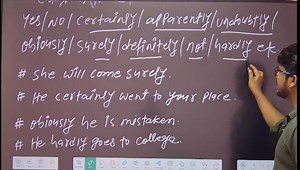 Yes/No/certainly/apparently/undoubtly/
obiously/surely/definitely/not/hardly etc
# She will come surely.
# He certainly went to your place.
# obiously he is mistaken.
# He hardly goes to college.